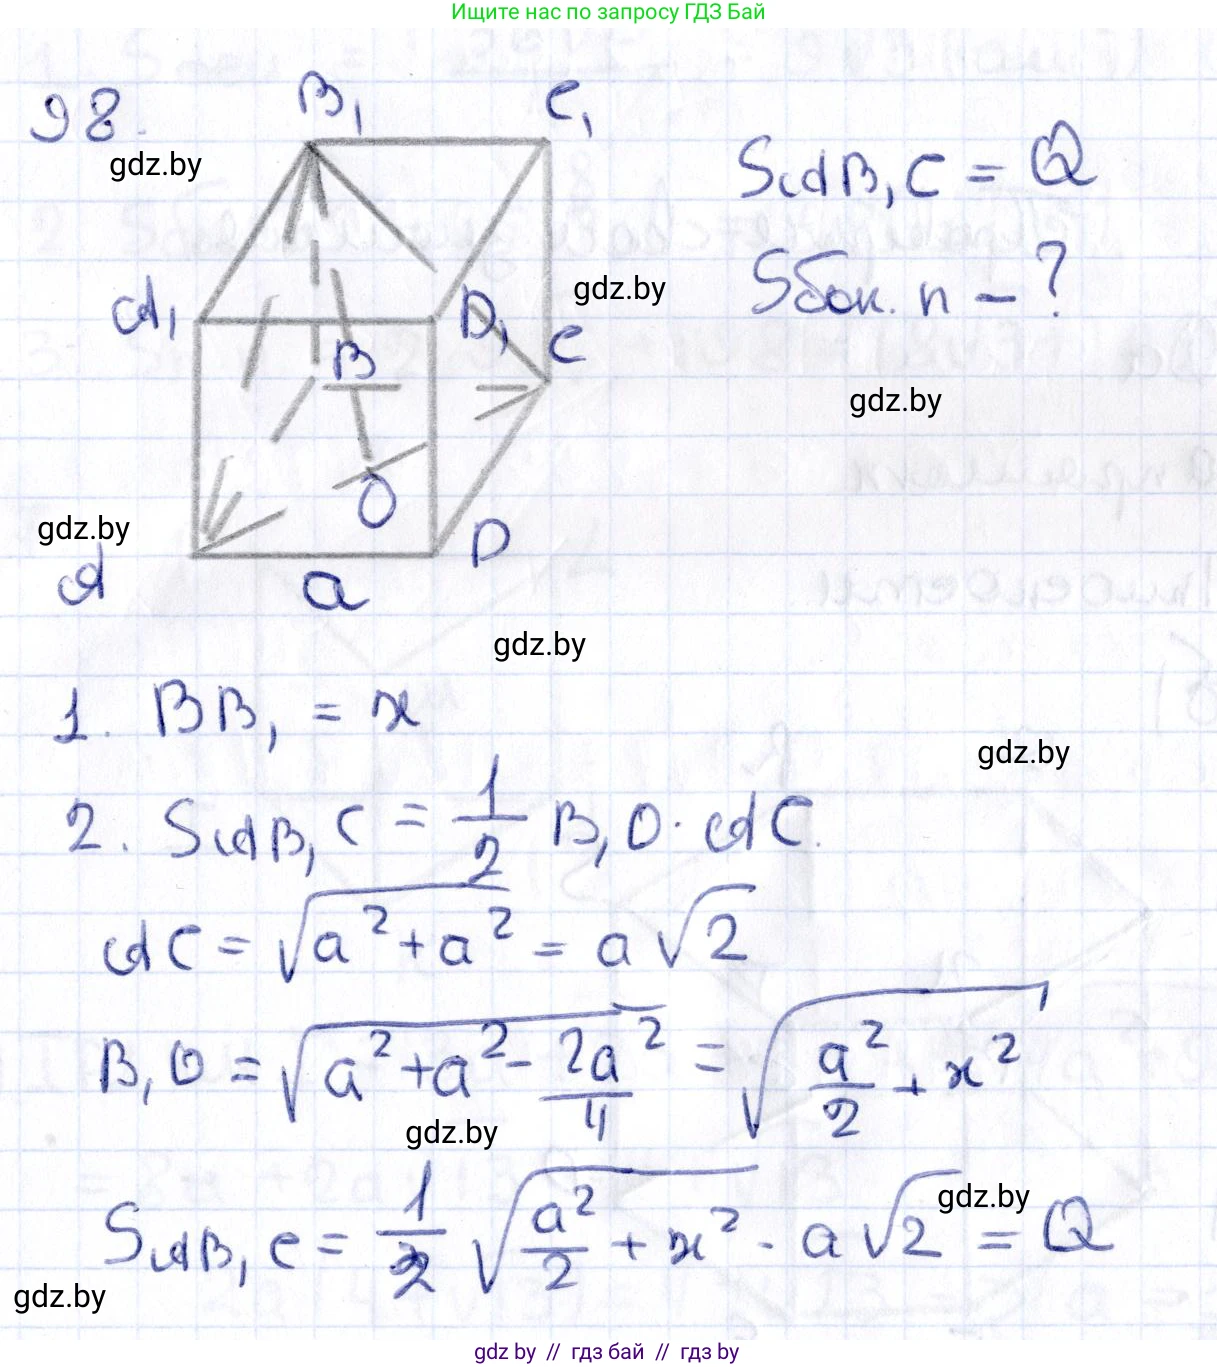 Ищите нас по запросу ГДЗ Бай
98.
B₁
C₁
gdz.by
S_AB₁C = Q
gdz.by
A₁
D₁
Sбок. п – ?
B
C
gdz.by
O
gdz.by
D
A
a
gdz.by
1. BB₁ = x
gdz.by
2. S_AB₁C = 1/2 B₁O · AC.
AC = √(a² + a²) = a√2
B₁O = √(a² + a² - 2a²/4) = √(a²/2 + x²)
gdz.by
gdz.by
S_AB₁C = 1/2 √(a²/2 + x²) · a√2 = Q
gdz.by
gdz by // гдз бай // гдз by